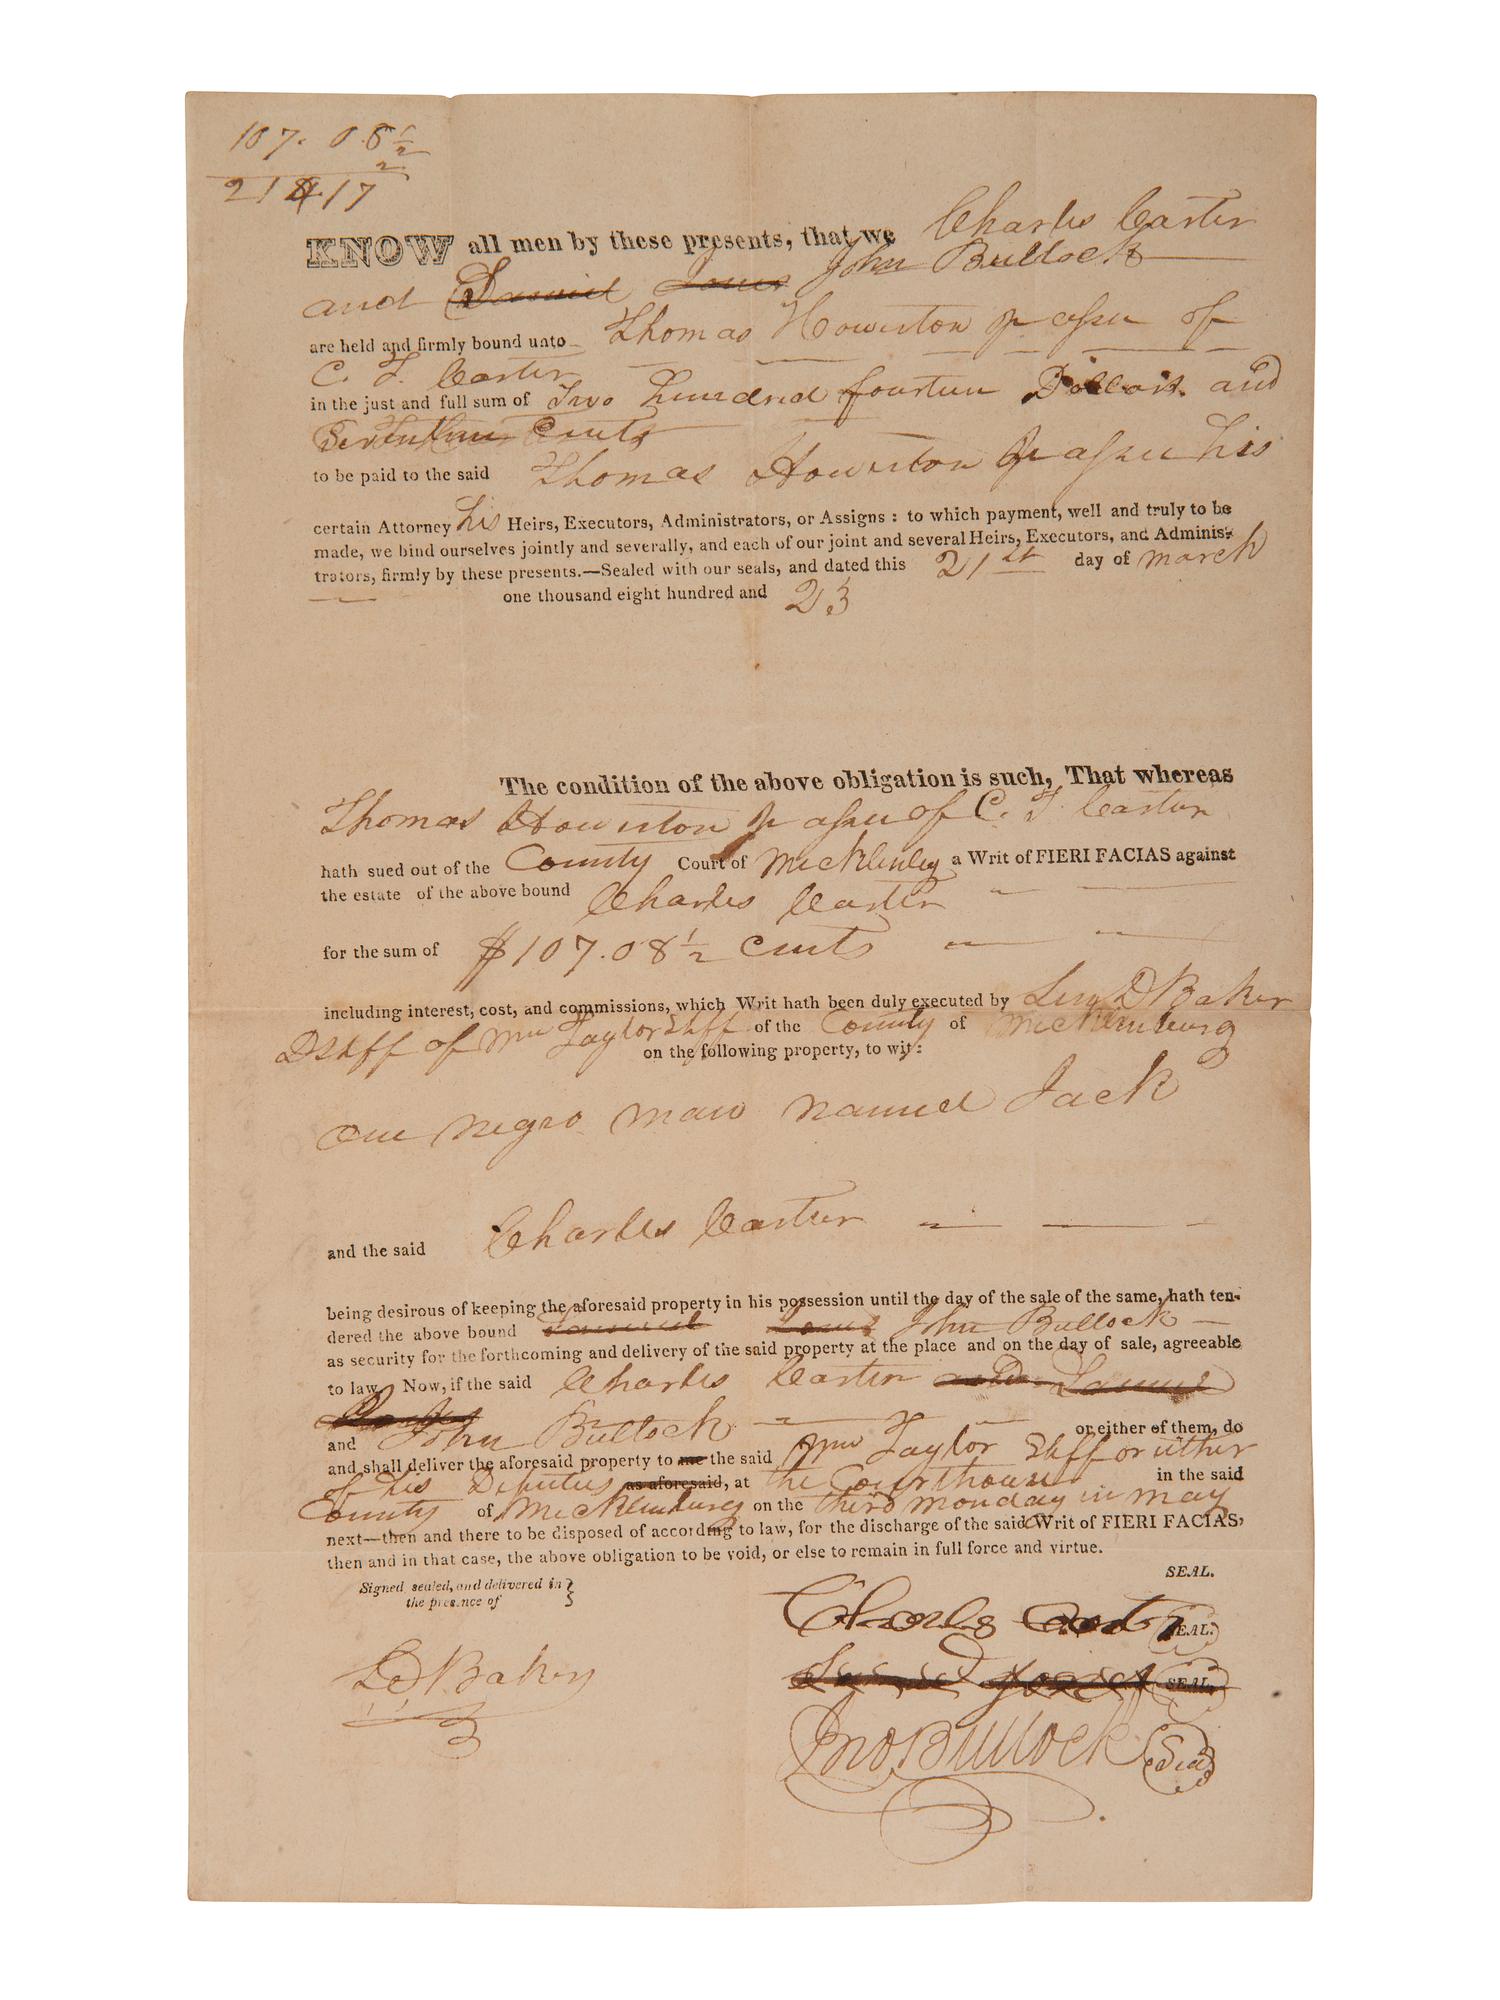 107. 08½
2
214.17
KNOW all men by these presents, that we Charles Carter
and Samuel Jones John Bullock
are held and firmly bound unto Thomas Howerton assee of
C. T. Carter
in the just and full sum of Two hundred fourteen Dollars and
Seventeen Cents
to be paid to the said Thomas Howerton assee his
certain Attorney his Heirs, Executors, Administrators, or Assigns : to which payment, well and truly to be
made, we bind ourselves jointly and severally, and each of our joint and several Heirs, Executors, and Adminis-
trators, firmly by these presents.—Sealed with our seals, and dated this 21st day of march
one thousand eight hundred and 23
The condition of the above obligation is such, That whereas
Thomas Howerton assee of C. T. Carter
hath sued out of the County Court of Mecklenburg a Writ of FIERI FACIAS against
the estate of the above bound Charles Carter
for the sum of $107.08½ Cents
including interest, cost, and commissions, which Writ hath been duly executed by D Baker
DShff of Wm Taylor Shff of the County of Mecklenburg
on the following property, to wit:
One negro man named Jack
and the said Charles Carter
being desirous of keeping the aforesaid property in his possession until the day of the sale of the same, hath ten-
dered the above bound Samuel Jones John Bullock
as security for the forthcoming and delivery of the said property at the place and on the day of sale, agreeable
to law. Now, if the said Charles Carter and Samuel
and John Bullock or either of them, do
and shall deliver the aforesaid property to me the said Wm Taylor Shff or either
of his Deputies as aforesaid, at the Courthouse in the said
County of Mecklenburg on the third monday in may
next—then and there to be disposed of according to law, for the discharge of the said Writ of FIERI FACIAS,
then and in that case, the above obligation to be void, or else to remain in full force and virtue.
SEAL.
Signed sealed, and delivered in
the presence of
Charles Carter SEAL.
Samuel Jones SEAL.
L D Baker
Jno Bullock Seal